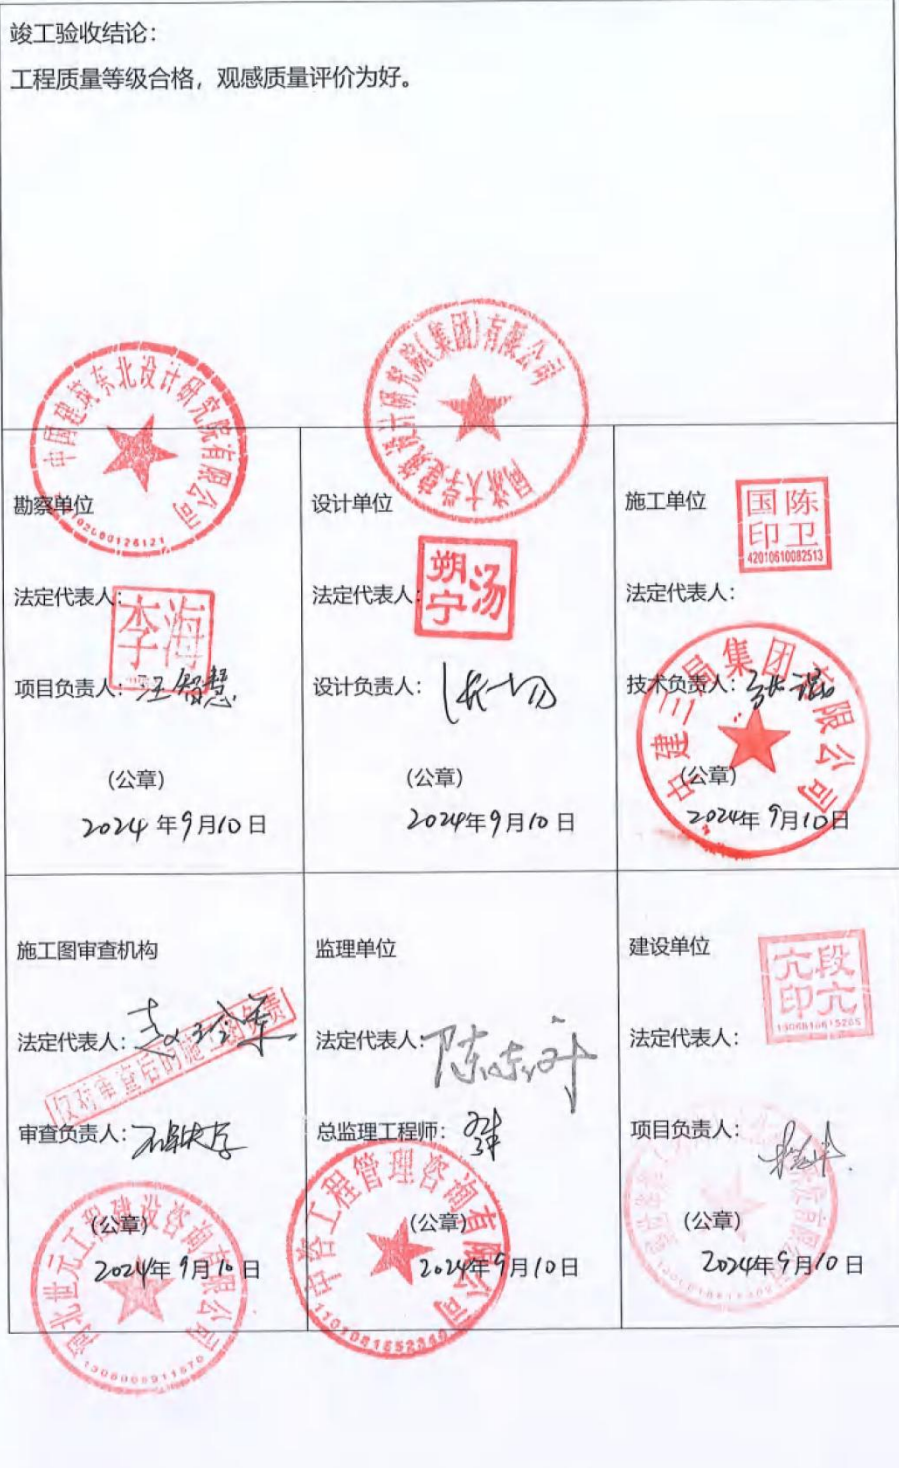 竣工验收结论：
工程质量等级合格，观感质量评价为好。
中国建筑东北设计研究院有限公司
同济大学建筑设计研究院(集团)有限公司
勘察单位
法定代表人：
李海
项目负责人：汪智慧
（公章）
2024年9月10日
设计单位
法定代表人：
汤朔宁
设计负责人：
（公章）
2024年9月10日
施工单位
陈卫国印
42010610082513
法定代表人：
技术负责人：
中建三局集团有限公司
（公章）
2024年9月10日
施工图审查机构
法定代表人：
仅对审查后的施工图负责
审查负责人：
河北世元工程建设咨询有限公司
（公章）
2024年9月10日
监理单位
法定代表人：
总监理工程师：
中咨工程管理咨询有限公司
（公章）
2024年9月10日
建设单位
段亢亢印
法定代表人：
项目负责人：
（公章）
2024年9月10日